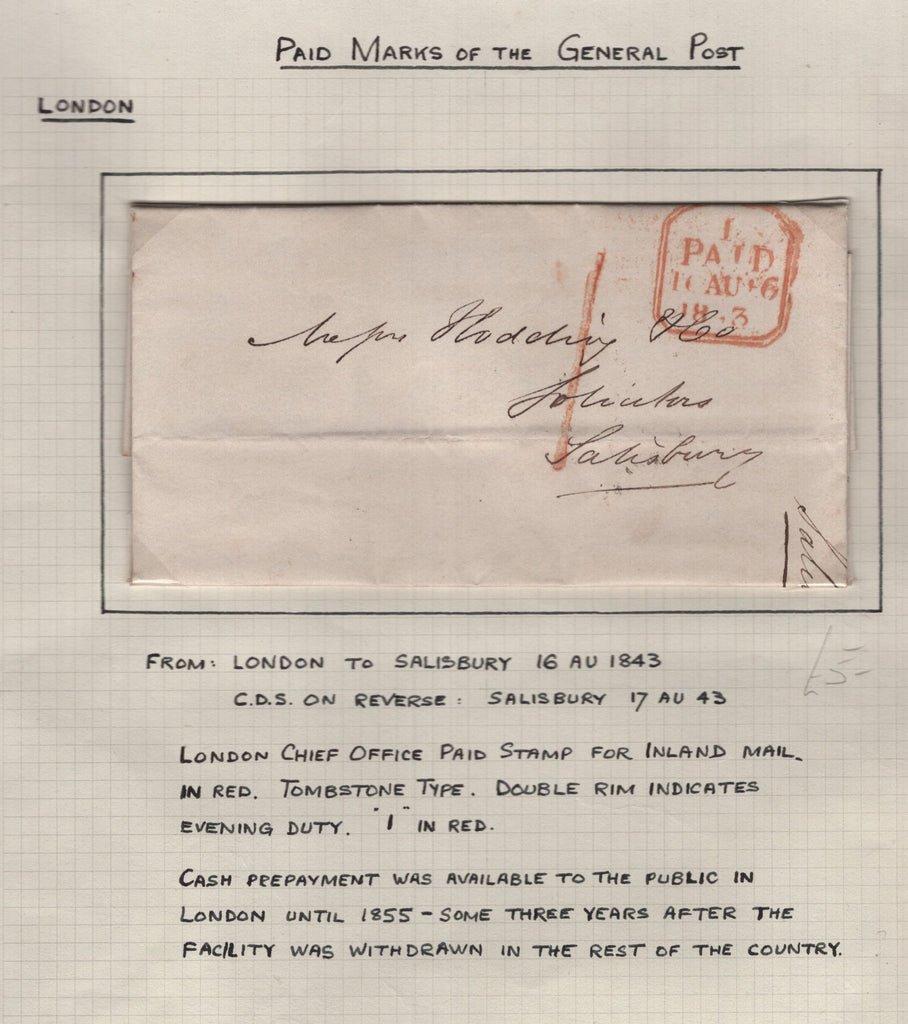 PAID MARKS OF THE GENERAL POST
LONDON
1
PAID
AU
18 3
1
Messrs Hodding & Co
Solicitors
Salisbury
FROM: LONDON TO SALISBURY 16 AU 1843
£5-
C.D.S. ON REVERSE: SALISBURY 17 AU 43
LONDON CHIEF OFFICE PAID STAMP FOR INLAND MAIL.
IN RED. TOMBSTONE TYPE. DOUBLE RIM INDICATES
EVENING DUTY. "1" IN RED.
CASH PREPAYMENT WAS AVAILABLE TO THE PUBLIC IN
LONDON UNTIL 1855 - SOME THREE YEARS AFTER THE
FACILITY WAS WITHDRAWN IN THE REST OF THE COUNTRY.